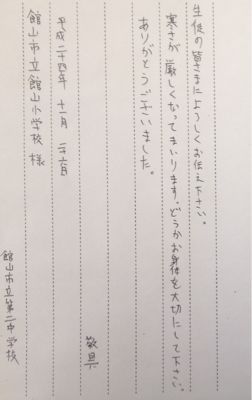 生徒の皆さまによろしくお伝え下さい。
寒さが厳しくなってまいります。どうかお身体を大切にして下さい。
ありがとうございました。
敬具
平成二十四年 十一月 二十六日
館山市立館山小学校 様
館山市立第二中学校